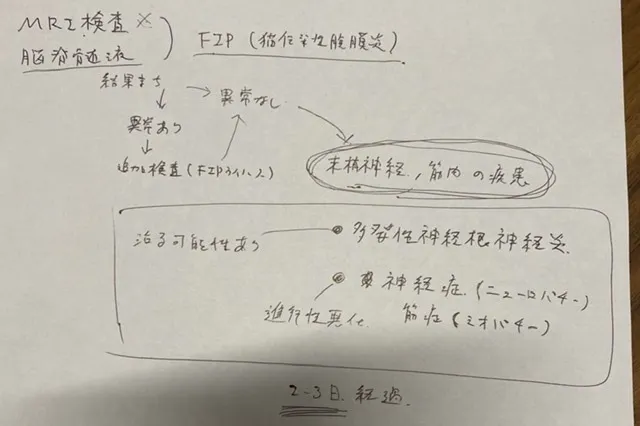 MRI検査 ×
脳脊髄液
FIP(猫伝染性腹膜炎)
結果まち
→ 異常なし
異常あり
追加検査(FIPウイルス)
末梢神経、筋肉の疾患
治る可能性あり
● 多発性神経根神経炎
● 神経症(ニューロパチー)
進行性悪化
筋症(ミオパチー)
2-3日経過